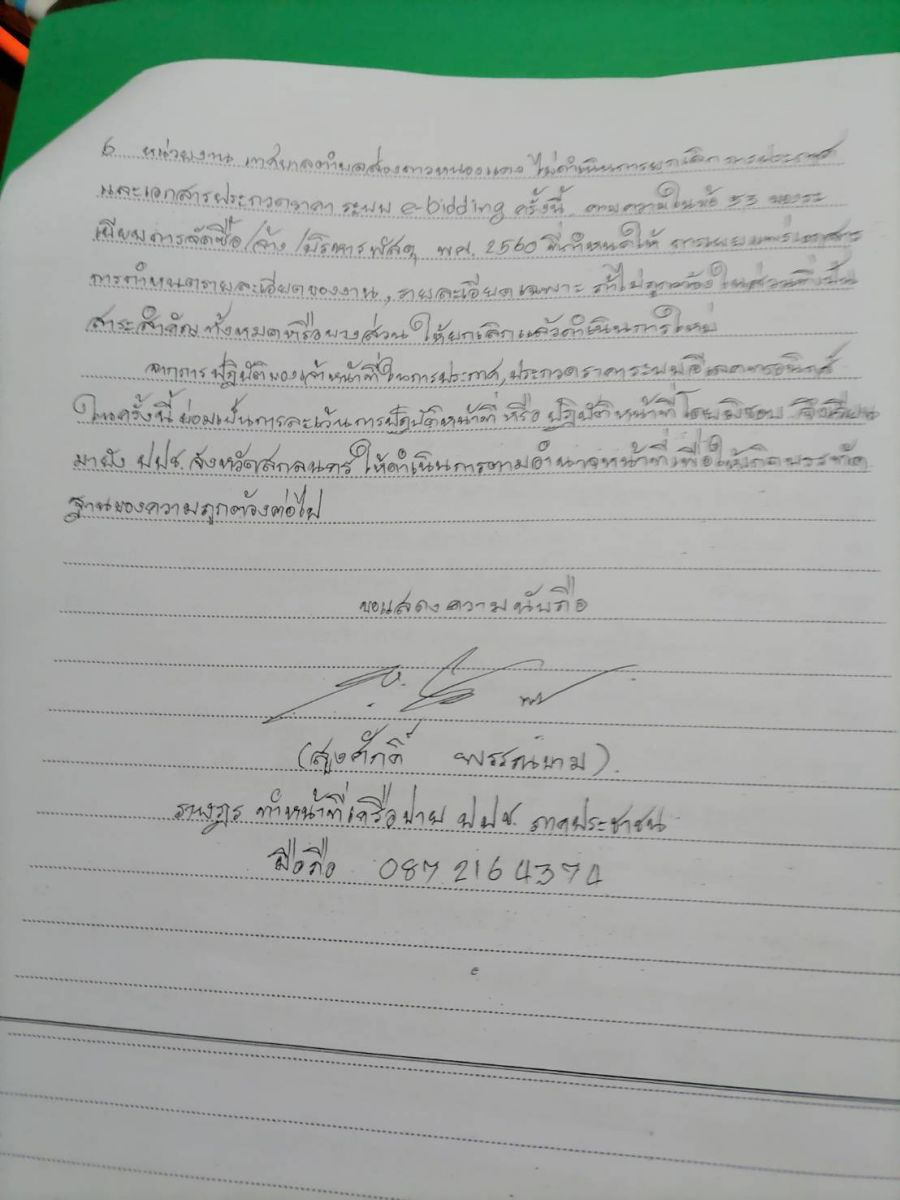 6 หน่วยงาน เทศบาลตำบลส่องดาวหนองแดง ไม่ดำเนินการยกเลิก การประกาศ
และเอกสารประกวดราคา ระบบ e-bidding ครั้งนี้ ตามความในข้อ 53 ของระ
เบียบการจัดซื้อ/จ้าง/บริหารพัสดุ พ.ศ. 2560 ที่กำหนดให้ การเผยแพร่เอกสาร
การกำหนดรายละเอียดของงาน, รายละเอียดเฉพาะ ถ้าไม่ถูกต้องในส่วนที่เป็น
สาระสำคัญทั้งหมดหรือบางส่วน ให้ยกเลิกแล้วดำเนินการใหม่
จากการปฏิบัติของเจ้าหน้าที่ในการประกาศ, ประกวดราคาระบบอีเลคทรอนิกส์
ในครั้งนี้ ย่อมเป็นการละเว้นการปฏิบัติหน้าที่ หรือ ปฏิบัติหน้าที่โดยมิชอบ จึงเรียน
มายัง ปปช. จังหวัดสกลนคร ให้ดำเนินการตามอำนาจหน้าที่เพื่อให้เกิดบรรทัด
ฐานของความถูกต้องต่อไป
ขอแสดงความนับถือ
(สูงศักดิ์ พรรณนาม).
ราษฎร ทำหน้าที่เครือข่าย ปปช. ภาคประชาชน
มือถือ 087 2164374